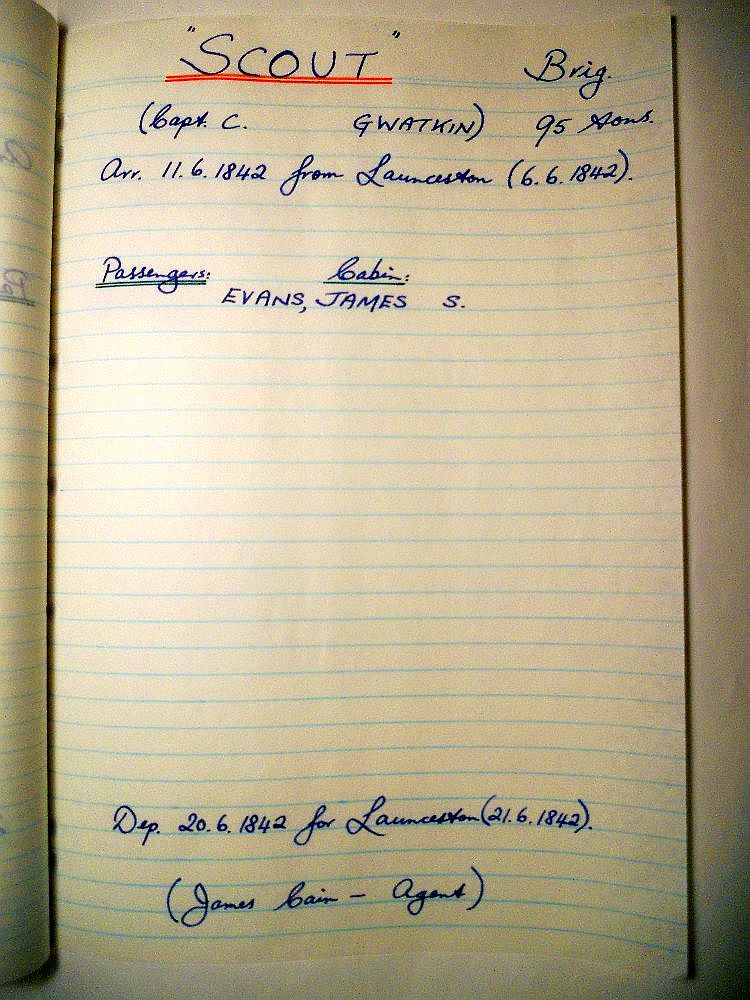 "SCOUT" Brig.
(Capt. C. GWATKIN) 95 tons.
Arr. 11.6.1842 from Launceston (6.6.1842).
Passengers: Cabin:
EVANS, JAMES S.
Dep. 20.6.1842 for Launceston (21.6.1842).
(James Cain - Agent)